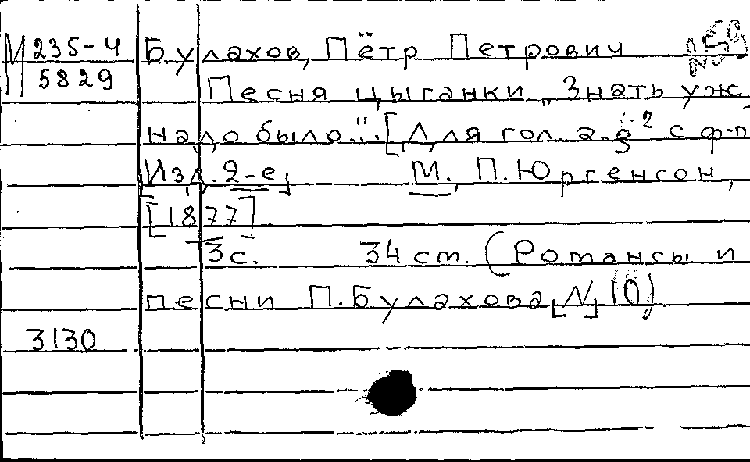 М 235-4 Булахов, Пётр Петрович
5829 Песня цыганки „Знать уж
надо было..." [Для гол. с ф-п
Изд. 2-е] М., П. Юргенсон,
[1877]
3с. 34 ст. (Романсы и
песни П. Булахова [N] 10)
3130